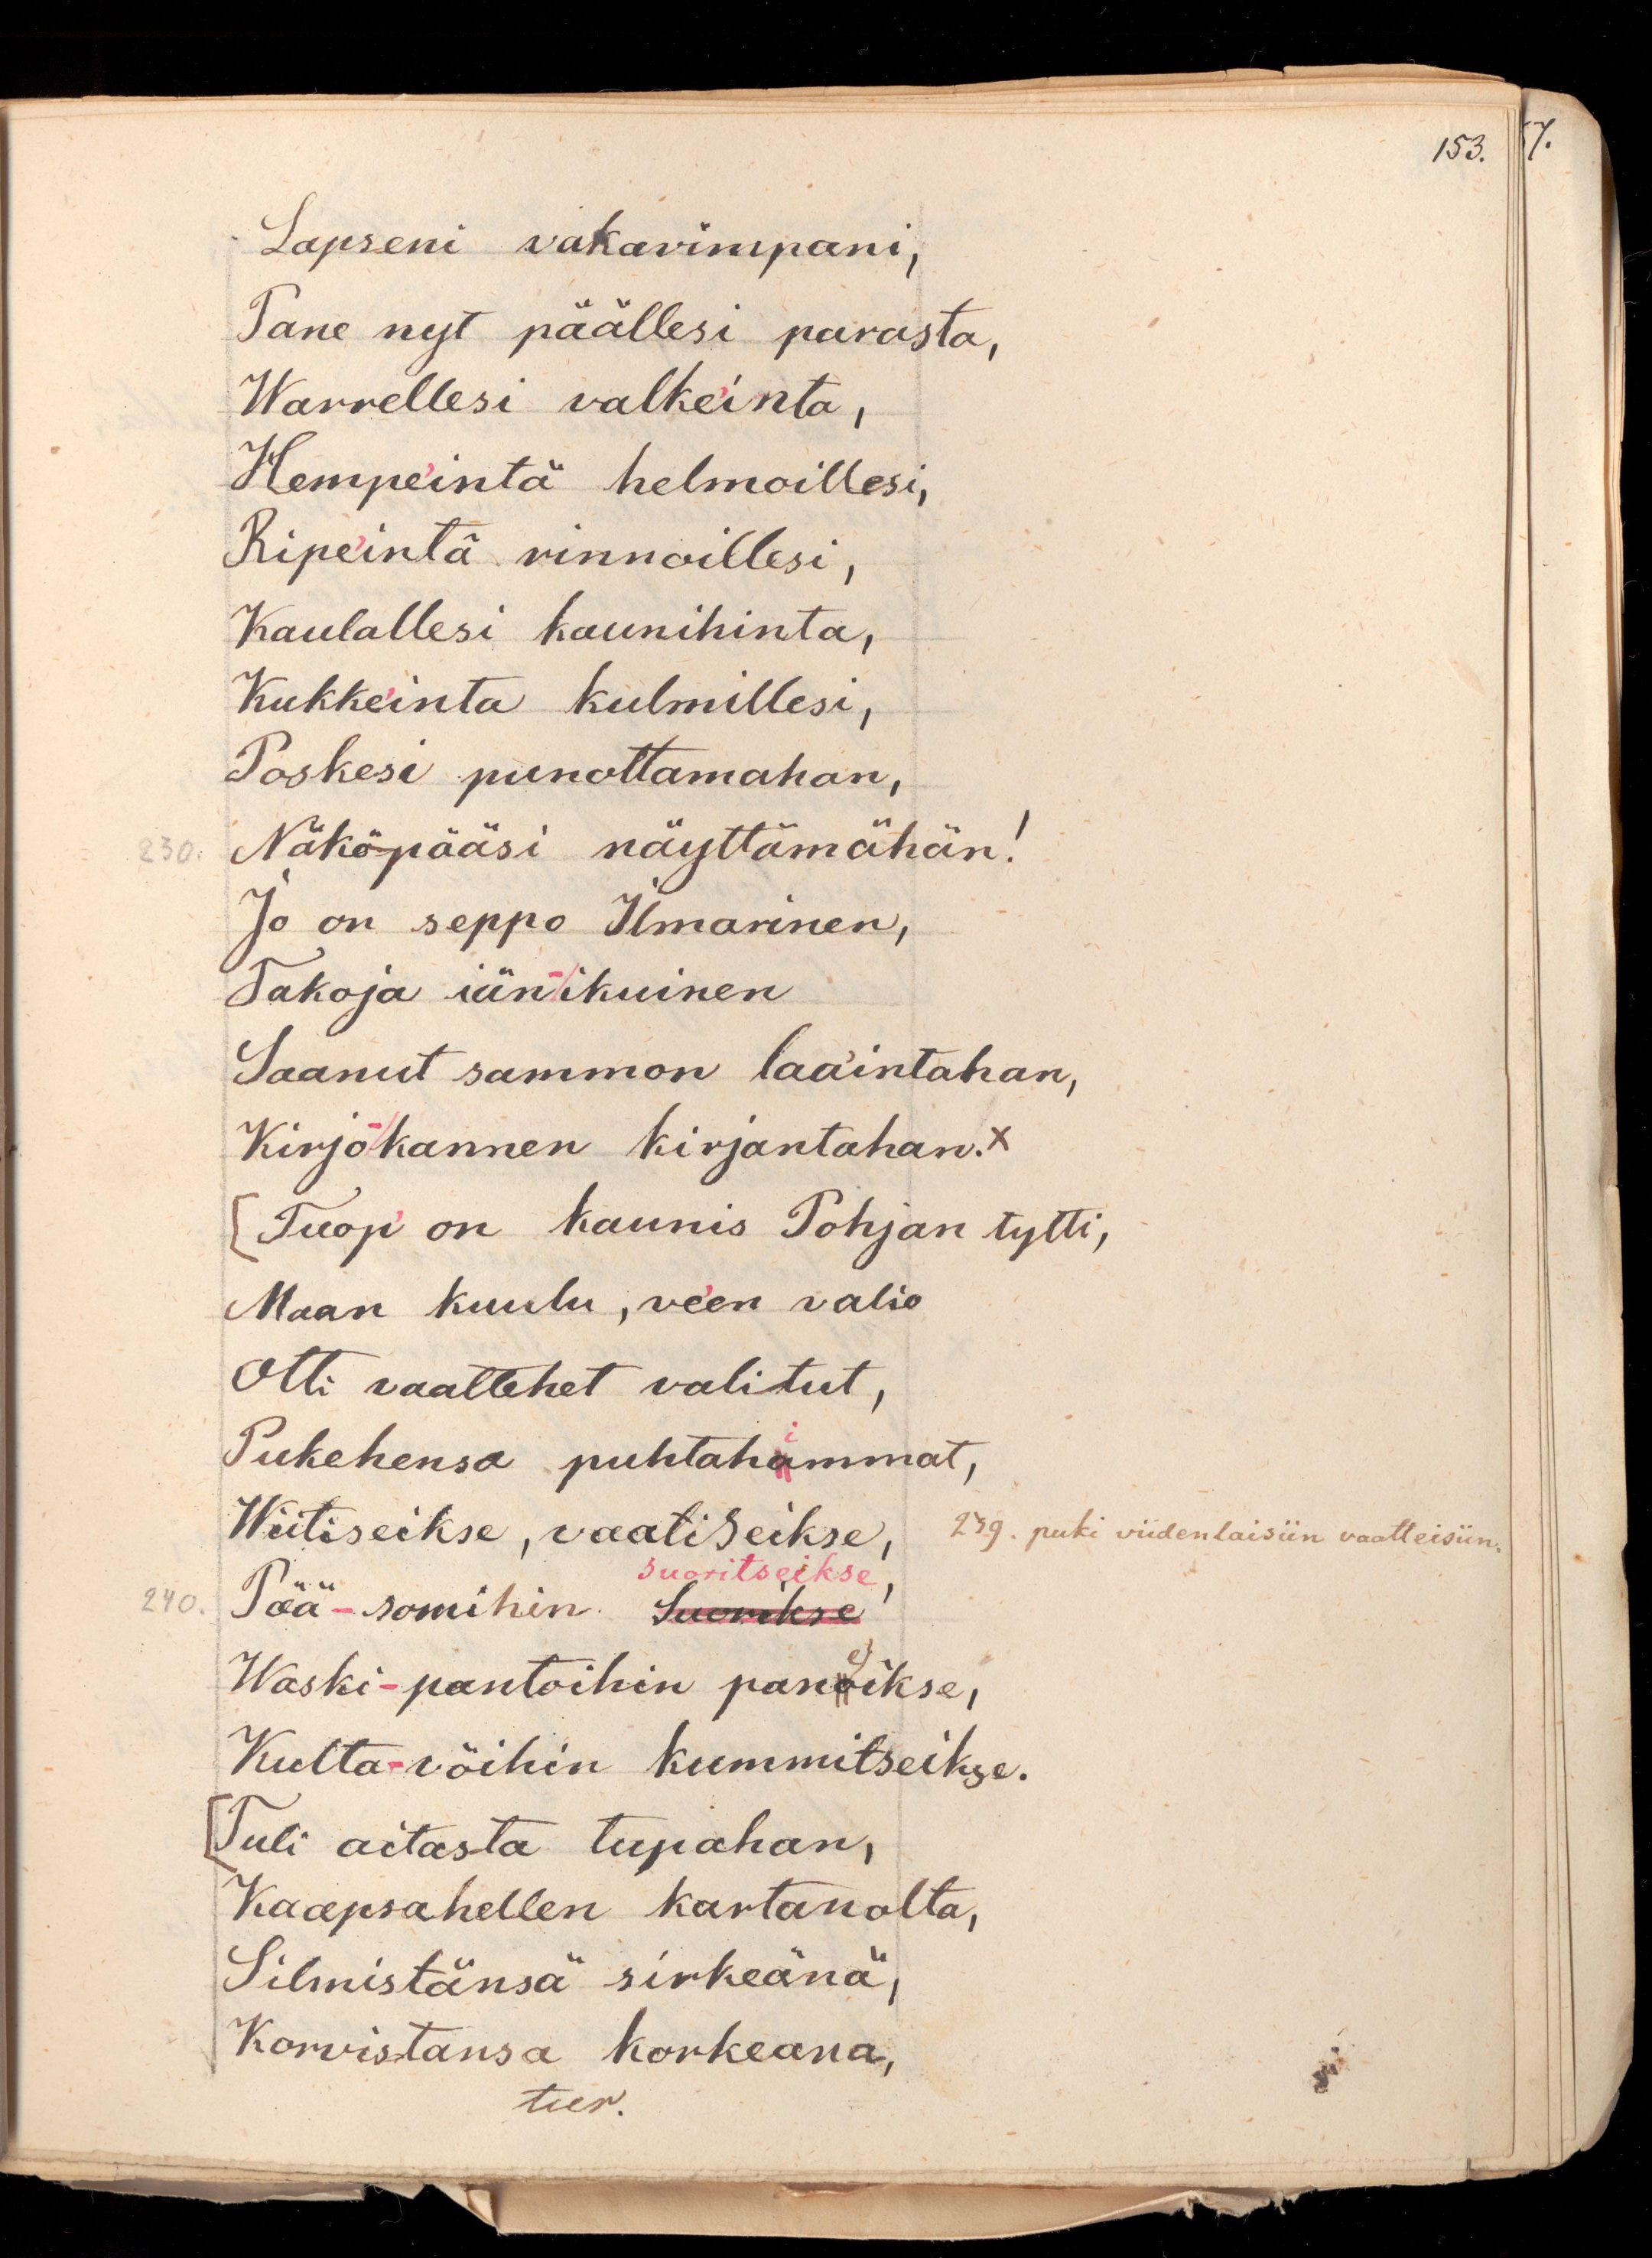 153.
57.
Lapseni vakavimpani,
Pane nyt päällesi parasta,
Warrellesi valke'inta,
Hempe'intä helmoillesi,
Ripe'intä rinnoillesi,
Kaulallesi kaunihinta,
Kukke'inta kulmillesi,
Poskesi punottamahan,
230. Näköpääsi näyttämähän!
Jo on seppo Ilmarinen,
Takoja iän-ikuinen
Saanut sammon laa'intahan,
Kirjo-kannen kirjantahan.x
[Tuop' on kaunis Pohjan tytti,
Maan kuulu, ve'en valio
Otti vaattehet valitut,
Pukehensa puhtahimmat,
Wiitiseikse, vaatiseikse, 239. puki viidenlaisiin vaatteisiin.
suoritseikse,
240. Pää-somihin Suorikse
Waski-pantoihin paneikse,
Kulta-vöihin kummitseikse.
[Tuli aitasta tupahan,
Kaapsahellen kartanolta,
Silmistänsä sirkeänä,
Korvistansa korkeana,
tur.